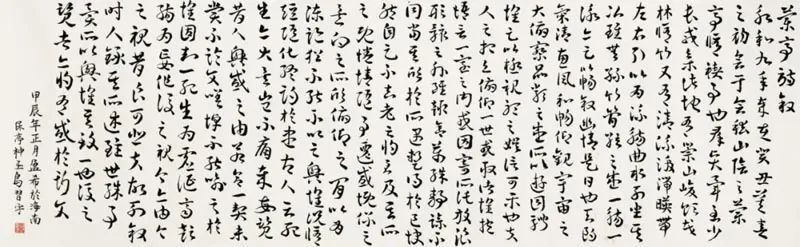 蘭亭詩敘
永和九年歲在癸丑莫春
之初會于會稽山陰之蘭
亭脩禊事也群賢畢至少
長咸集此地有崇山峻領茂
林脩竹又有清流激湍暎帶
左右引以為流觴曲水列坐其
次雖無絲竹管弦之盛一觴一
詠亦足以暢敘幽情是日也天朗
氣清惠風和暢仰觀宇宙之
大俯察品類之盛所以遊目騁
懷足以極視聽之娛信可樂也夫
人之相与俯仰一世或取諸懷抱
悟言一室之內或因寄所託放浪
形骸之外雖趣舍萬殊靜躁不
同當其欣於所遇蹔得於己快
然自足不知老之將至及其所
之既惓情隨事遷感慨係之
矣向之所欣俛仰之間以為
陳跡猶不能不以之興懷況脩
短隨化終期於盡古人云死
生亦大矣豈不痛哉每攬
昔人興感之由若合一契未
嘗不臨文嗟悼不能喻之於
懷固知一死生為虛誕齊彭
殤為妄作後之視今亦由今
之視昔悲夫故列敘
時人錄其所述雖世殊事
異所以興懷其致一也後之
覽者亦將有感於斯文
甲辰年正月孟希於海南
保亭神玉島習字